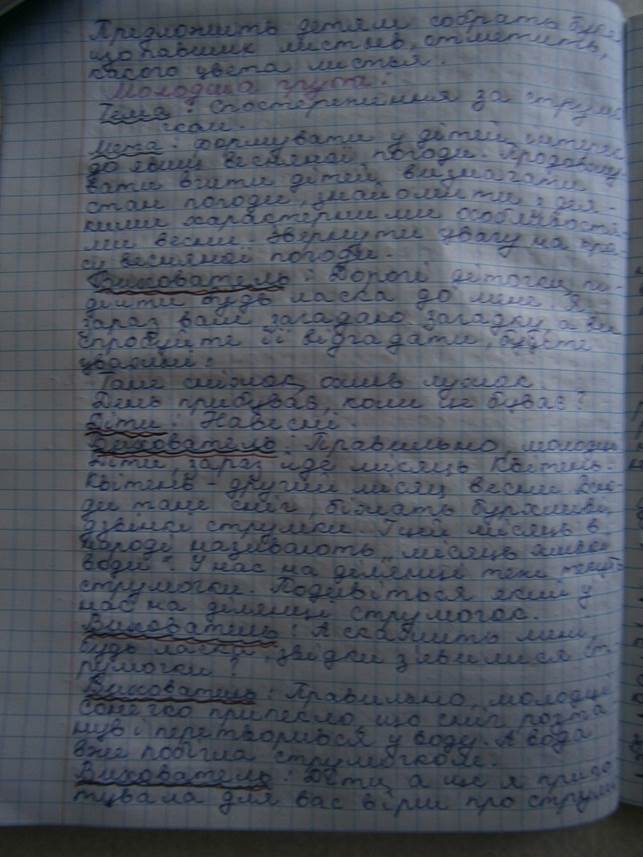 Предложить детям собрать букет
опавших листьев, отметить,
какого цвета листья.
Молодша група:
Тема: Спостереження за струмоч
ком.
Мета: Формувати у дітей інтерес
до явищ весняної погоди. Продовжу
вати вчити дітей визначати
стан погоди, знайомити з дея-
кими характерними особливостя
ми весни. Звернути увагу на кра
су весняної погоди.
Вихователь: Дорогі діточки, пі-
дійти будь ласка до мене, я
зараз вам загадаю загадку, а ви
спробуйте її відгадати, будьте
уважні:
Тане сніжок, ожив лужок
День прибував, коли це буває?
Діти: Навесні.
Вихователь: Правильно, молодці
Діти, зараз йде місяць Квітень.
Квітень - другий місяц весни
тане сніг, біжать бурхливі,
дзвінкі струмки. І цей місяць в
народі називають „місяць
води". У нас на ділянці теж течуть
струмочки. Подивіться який у
нас на ділянці струмочок.
Вихователь: А скажіть мені,
будь ласка, звідки з'явилися ст
румочки?
Вихователь: Правильно, молодці
сонечко припекло, що сніг розта
нув і перетворився у воду. А вода
вже побігла струмочком.
Вихователь: Діти, а ще я приго
тувала для вас вірш про струмок